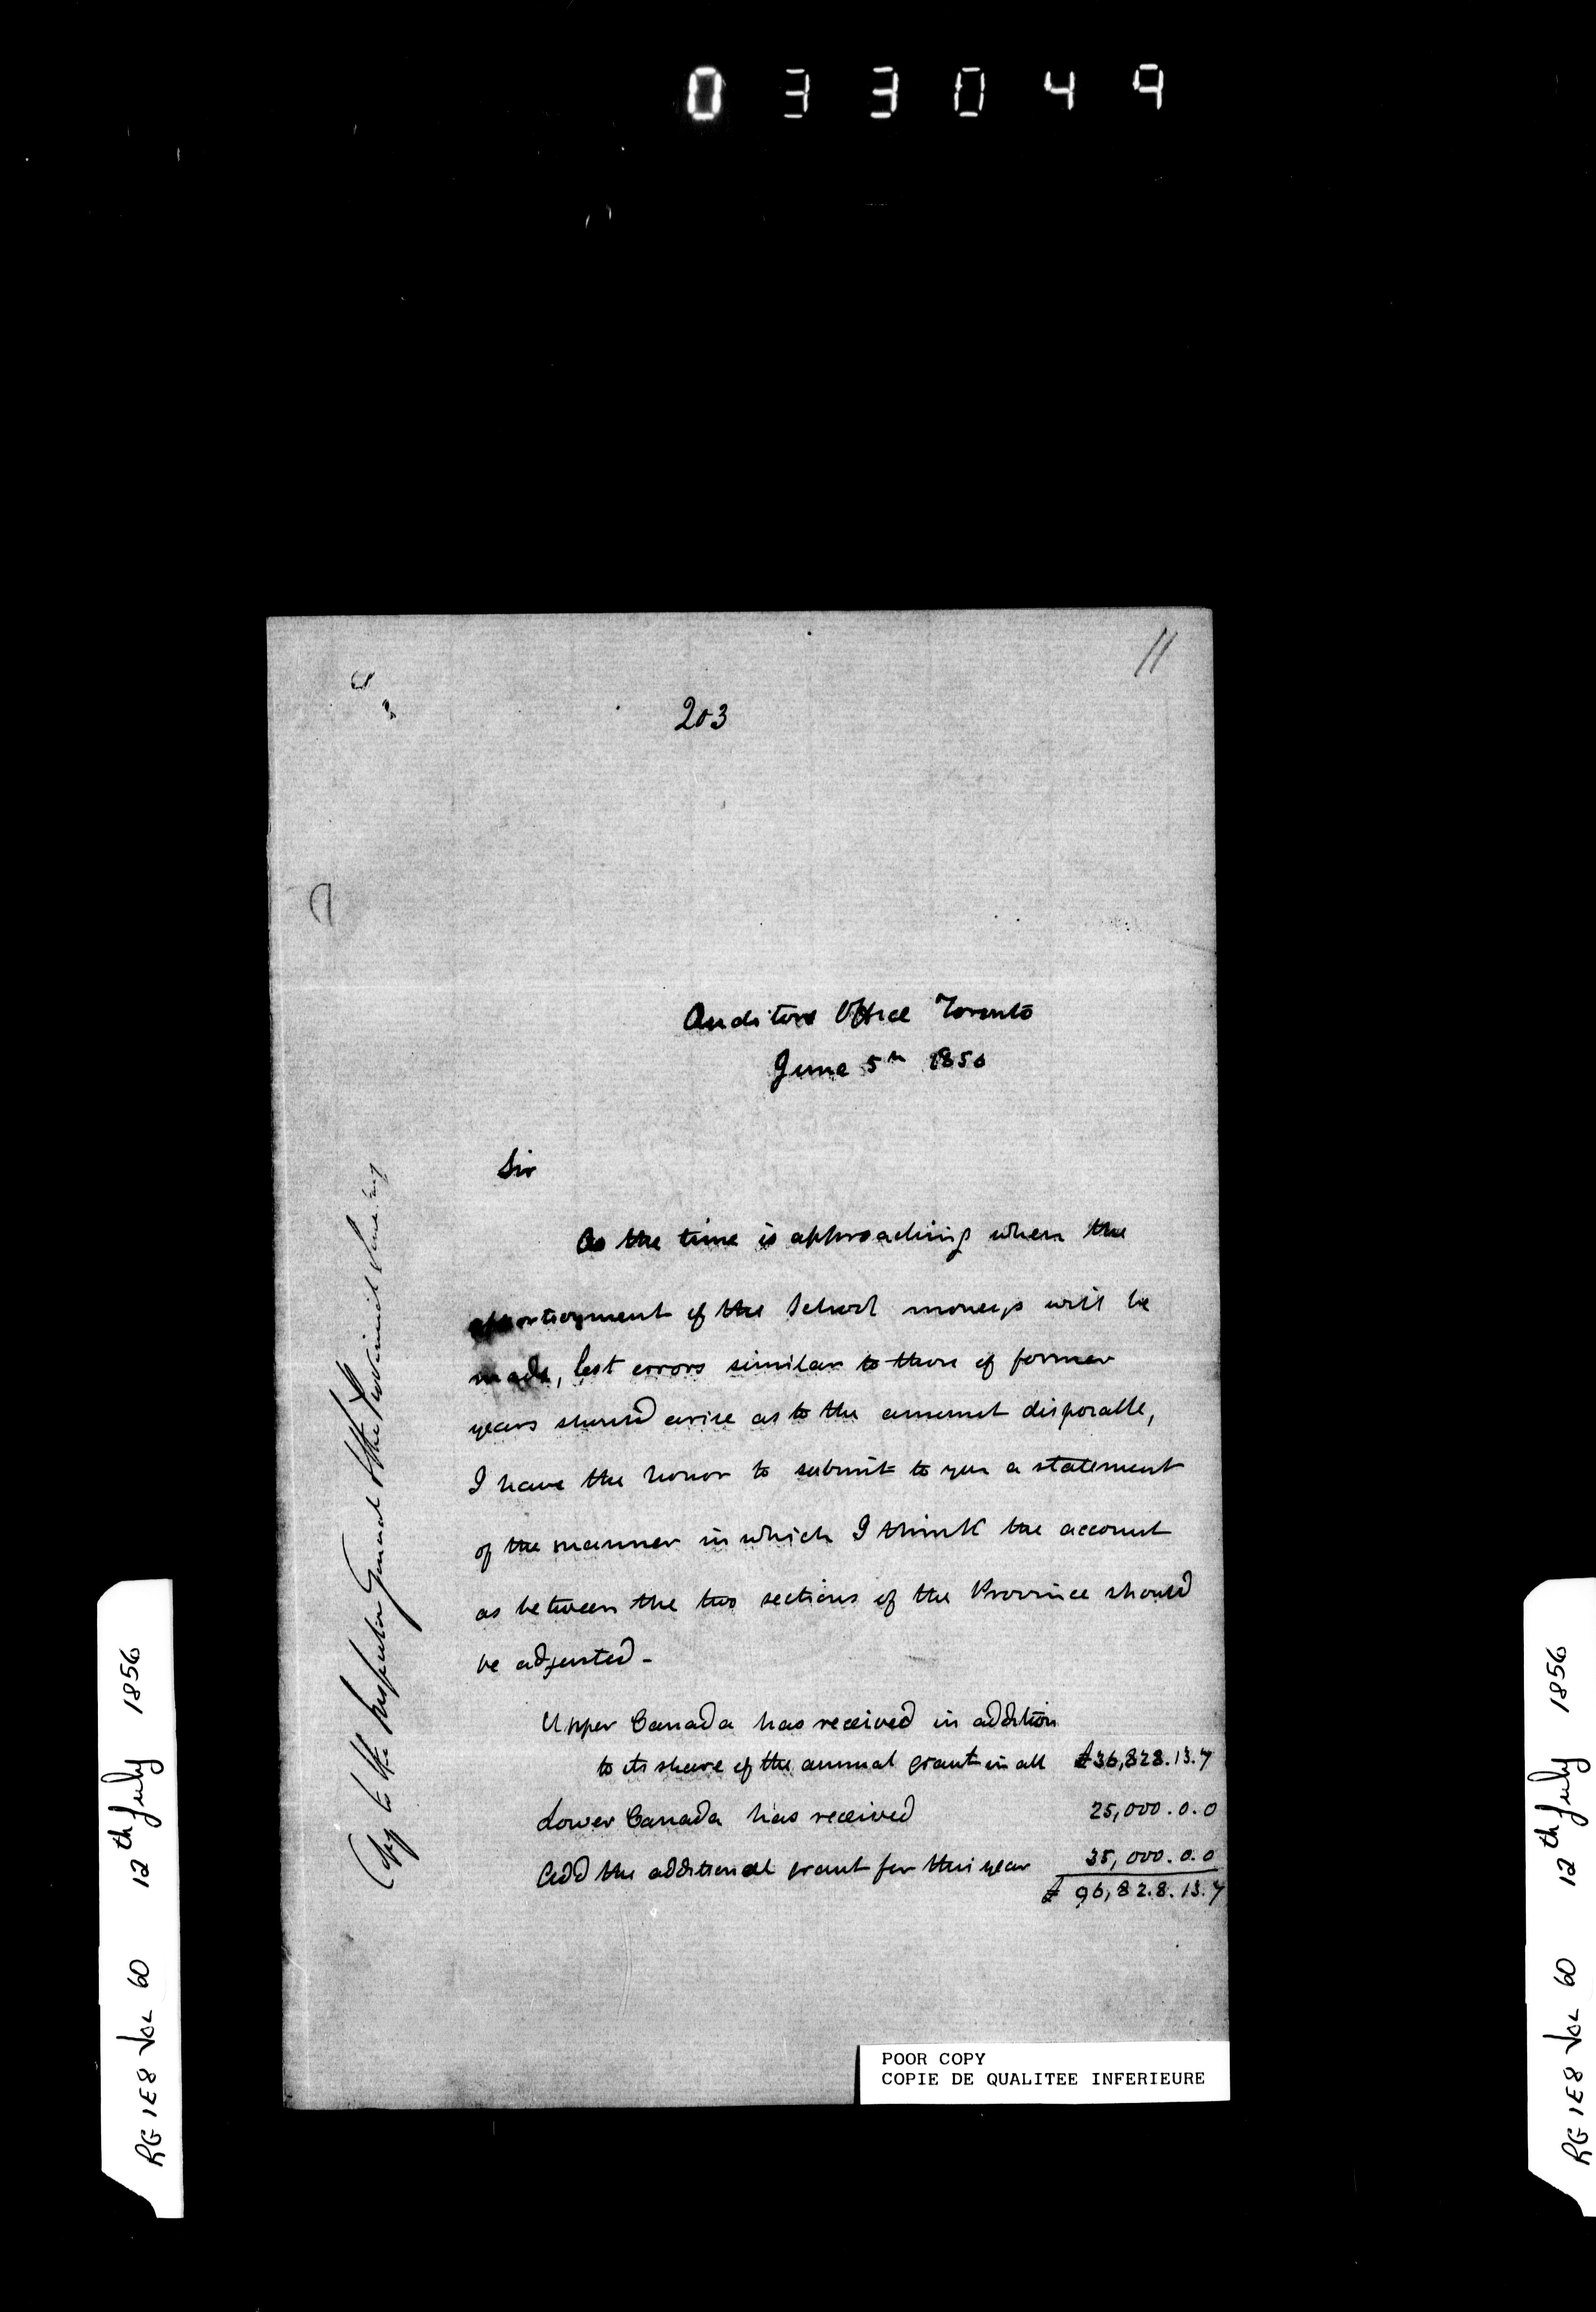 033049
11
203
Auditors Office Toronto
June 5th 1856
Sir
As the time is approaching when the
apportionment of the School moneys will be
made, lest errors similar to those of former
years should arise as to the amount disposable,
I have the honor to submit to you a statement
of the manner in which I think the account
as between the two sections of the Province should
be adjusted -
Upper Canada has received in addition
to its share of the annual grant in all £36,828.13.7
Lower Canada has received 25,000.0.0
Add the additional grant for this year 35,000.0.0
£ 96,828.13.7
Copy to the Inspector General & the Provincial Secretary
POOR COPY
COPIE DE QUALITEE INFERIEURE
RG 1E8 Vol 60 12th July 1856
RG 1E8 Vol 60 12th July 1856